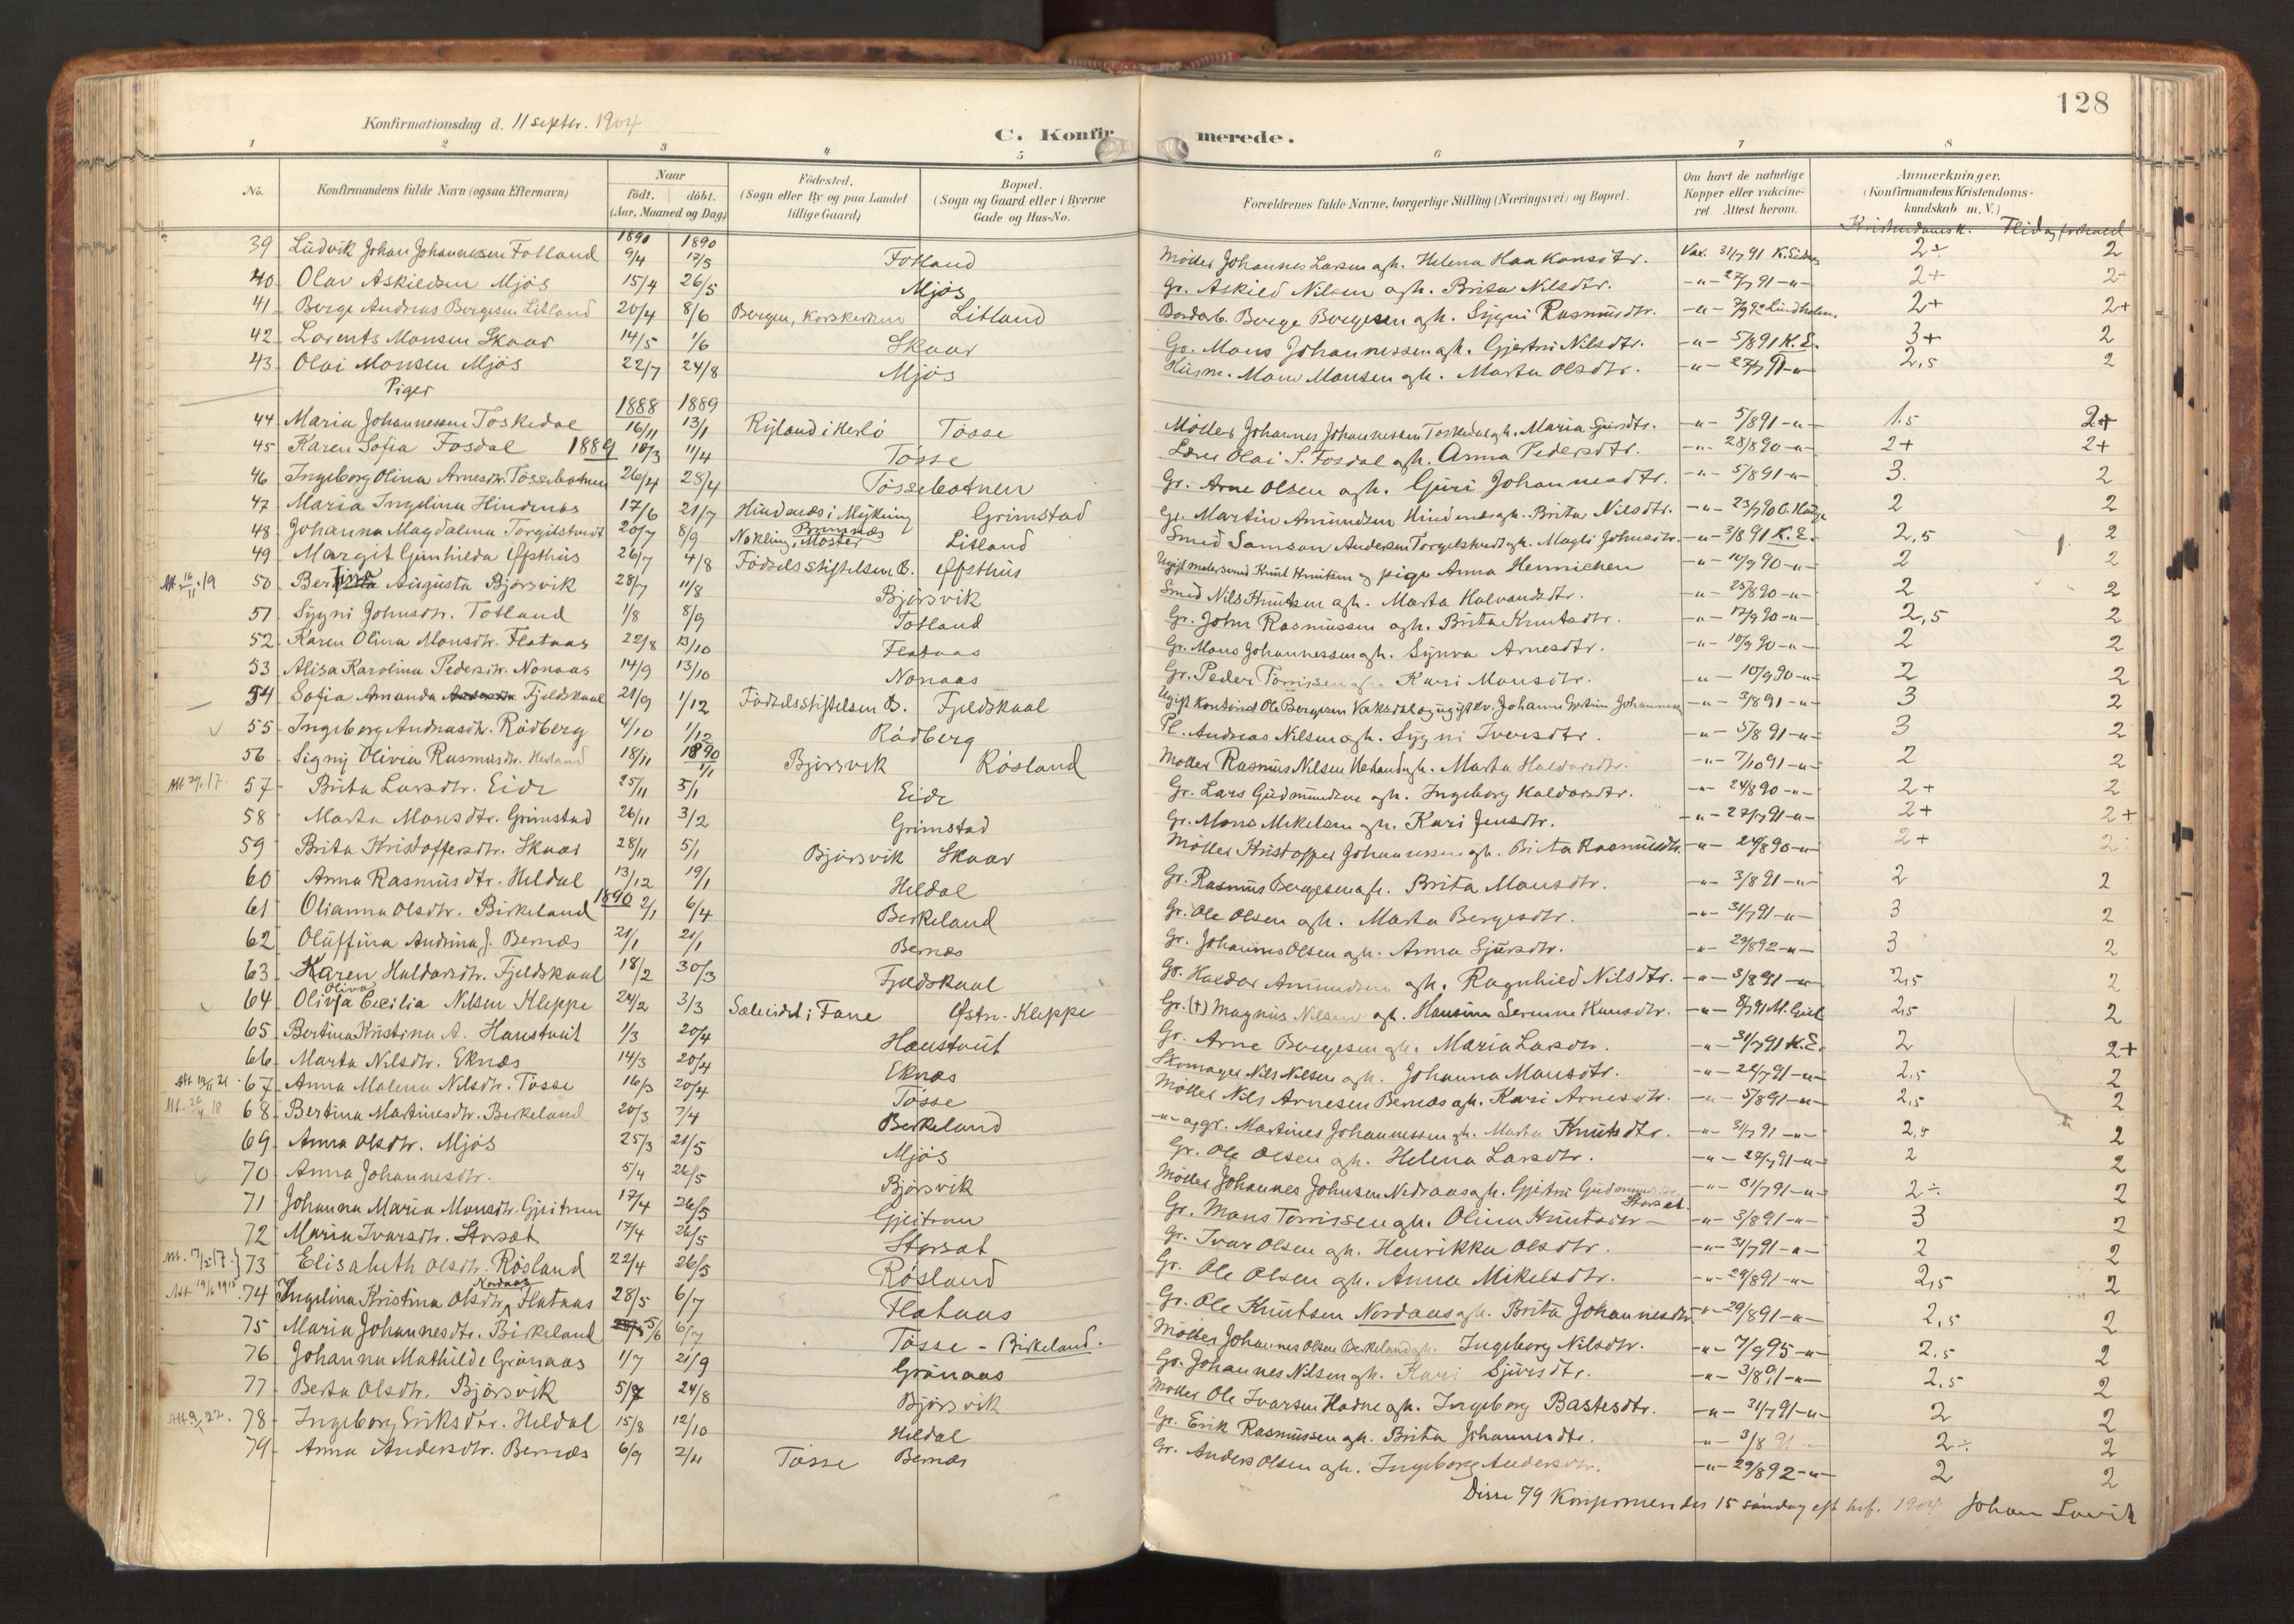 128
Konfirmationsdag d. 11 septbr. 1904
C. Konfirmerede.
1 2 3 4 5 6 7 8
No. Konfirmandens fulde Navn (ogsaa Efternavn) Naar födt. döbt. (Aar, Maaned og Dag) Födested. (Sogn eller By og paa Landet tillige Gaard) Bopæl. (Sogn og Gaard eller i Byerne Gade og Hus-No. Forældrenes fulde Navne, borgerlige Stilling (Næringsvei) og Bopæl. Om havt de naturlige Kopper eller vakcineret. Attest herom. Anmærkninger. (Konfirmandens Kristendomskundskab m. V.)
Kristendomsk. Flid og forhold
1890 1890
39 Ludvik Johan Johannessen Totland 9/4 17/5 Totland Möller Johannes Larsen agh. Helena Haakonsdtr. Vax. 31/7 91 2÷ 2
40 Olav Askildsen Mjös 15/4 26/5 Mjös Gr. Askild Nilsen agh. Brita Nilsdtr. -"- 27/7 91 -"- 2+ 2
41 Berge Andreas Bergesen Litland 20/4 8/6 Bergen, Korskirken Litland Berge Bergesen agh. Sygni Rasmusdtr. -"- Lindholm. 2+ 2+
42 Lorents Monsen Skaar 14/5 1/6 Skaar Gr. Mons Johannessen agh. Gjertrü Nilsdtr. -"- 5/8 91 K.E. 3+ 2
43 Olai Monsen Mjös 22/7 24/8 Mjös Husm. Mons Monsen agh. Marta Olsdtr. -"- 27/7 91 -"- 2,5 2
Piger
1888 1889
44 Maria Johannessen Toskedal 16/11 13/1 Ryland i Herlö Tösse Möller Johannes Johannessen Toskedal agh. Maria Sjursdtr. -"- 5/8 91 -"- 1.5 2+
45 Karen Sofia Fosdal 1889 10/3 11/4 Tösse Olai S. Fosdal agh. Anna Pedersdtr. -"- 28/8 90 -"- 2+ 2+
46 Ingeborg Olina Arnesdtr. Tössebotnen 26/4 28/4 Tössebotnen Gr. Arne Olsen agh. Guri Johannesdtr. -"- 5/8 91 -"- 3. 2
47 Maria Ingelina Hindenes 17/6 21/7 Hindenæs i Mykling Grimstad Gr. Martin Amundsen Hindenes agh. Brita Nilsdtr. -"- 23/7 90 2 2
48 Johanna Magdalena Torgilstvedt 20/7 8/9 Nokling, Bremnæs Moster Litland Smed Samson Andersen Torgelstvedt agh. Magli Johnsdtr. -"- 3/8 91 K.E. 2,5 2
49 Margit Gunhilda Efsthus 26/7 4/8 Födselsstiftelsen B. Efsthus Ugift Knut Knutsen og pige Anna Hennichen -"- 10/9 90 -"- 2 2
Att. 16/11 19 50 Bertina Augusta Björsvik 28/7 11/8 Björsvik Smed Nils Knutsen agh. Marta Halvardsdtr. -"- 25/8 90 -"- 2 2
51 Sygni Johnsdtr. Totland 1/8 8/9 Totland Gr. John Rasmussen agh. Brita Knutsdtr. -"- 17/9 90 -"- 2,5 2
52 Karen Olina Monsdtr. Flataas 22/8 13/10 Flataas Gr. Mons Johannessen agh. Synva Arnesdtr. -"- 10/9 90 -"- 2 2
53 Alisa Karolina Pedersdtr. Nonaas 14/9 13/10 Nonaas Gr. Peder Torrissen agh. Kari Monsdtr. -"- 10/9 90 -"- 2 2
54 Sofia Amanda Fjeldskaal 21/9 1/12 Födselsstiftelsen B. Fjeldskaal Ugift Ole Bergesen Vaksdal og ugift kv. Johanne -"- 3/8 91 -"- 3 2
55 Ingeborg Andreasdtr. Rödberg 4/10 1/12 Rödberg Pl. Andreas Nilsen agh. Sygni Iversdtr. -"- 5/8 91 -"- 3 2
56 Signy Olivia Rasmusdtr. 18/11 1890 1/1 Björsvik Rösland Möller Rasmus Nilsen agh. Marta Haldorsdtr. -"- 7/10 91 -"- 2 2
57 Brita Larsdtr. Eide 25/11 5/1 Eide Gr. Lars Gudmundsen agh. Ingeborg Haldorsdtr. -"- 24/8 90 -"- 2+ 2
58 Marta Monsdtr. Grimstad 26/11 3/2 Grimstad Gr. Mons Mikelsen agh. Kari Jensdtr. -"- 27/7 91 -"- 2+ 2+
59 Brita Kristoffersdtr. Skaar 28/11 5/1 Björsvik Skaar Möller Kristoffer Johannessen agh. Brita Rasmusdtr. -"- 24/8 90 -"- 2+ 2
60 Anna Rasmusdtr. Heldal 13/12 19/1 Heldal Gr. Rasmus Bergesen agh. Brita Monsdtr. -"- 3/8 91 -"- 2 2
61 Olianna Olsdtr. Birkeland 1890 2/1 6/4 Birkeland Gr. Ole Olsen agh. Marta Bergesdtr. -"- 31/7 91 -"- 3 2
62 Oluffina Andrina J. Bernes 21/1 21/1 Bernes Gr. Johannes Olsen agh. Anna Sjursdtr. -"- 29/8 92 -"- 3 2
63 Karen Haldorsdtr. Fjeldskaal 18/2 30/3 Fjeldskaal Gr. Haldor Amundsen agh. Ragnhild Nilsdtr. -"- 3/8 91 -"- 2,5 2
64 Oliva Cecilia Nilsen Kleppe 24/2 3/3 i Fane Østre-Kleppe Gr. (†) Magnus Nilsen agh. Hansine Serenne Hansdtr. 2,5 2
65 Bertina Kristina A. Hanstveit 1/3 20/4 Hanstveit Gr. Arne Bergesen agh. Maria Larsdtr. -"- 31/7 91 K.E. 2 2+
66 Marta Nilsdtr. Eknæs 14/3 20/4 Eknæs Skomager Nils Nilsen agh. Johanna Monsdtr. -"- 22/7 91 -"- 2,5 2
67 Anna Malena Nilsdtr. Tösse 16/3 20/4 Tösse Möller Nils Arnesen Bernæs agh. Kari Arnesdtr. -"- 5/8 91 -"- 2,5 2
Att. 26/4 18 68 Bertina Martinesdtr. Birkeland 20/3 7/4 Birkeland -"- og gr. Martines Johannessen agh. Marta Knutsdtr. -"- 31/7 91 -"- 2,5 2
69 Anna Olsdtr. Mjös 25/3 21/5 Mjös Gr. Ole Olsen agh. Helena Larsdtr. -"- 27/7 91 -"- 2 2
70 Anna Johannesdtr. 5/4 26/5 Björsvik Möller Johannes Johnsen Nedraas agh. Gjertru -"- 31/7 91 -"- 2÷ 2
71 Johanna Maria Monsdtr. Gjeitrem 17/4 26/5 Gjeitrem Gr. Mons Torrissen agh. Olina Knutsdtr. -"- 3/8 91 -"- 3 2
72 Maria Ivarsdtr. Storset 17/4 26/5 Storset Gr. Ivar Olsen agh. Henrikka Olsdtr. -"- 31/7 91 -"- 2 2
73 Elisabeth Olsdtr. Rösland 22/4 26/5 Rösland Gr. Ole Olsen agh. Anna Mikelsdtr. -"- 29/8 91 -"- 2,5 2
74 Ingelina Kristina Olsdtr. Nordaas Flataas 28/5 6/7 Flataas Gr. Ole Knutsen Nordaas agh. Brita Johannesdtr. -"- 29/8 91 -"- 2,5 2
75 Maria Johannesdtr. Birkeland 5/6 6/7 Tösse - Birkeland. Möller Johannes Olsen Birkeland agh. Ingeborg Nilsdtr. -"- 7/9 95 -"- 2,5 2
76 Johanna Mathilde Grönaas 1/7 21/9 Grönaas Gr. Johannes Nilsen agh. Kari Sjursdtr. -"- 3/8 91 -"- 2,5 2
77 Berta Olsdtr. Björsvik 5/7 24/8 Björsvik Möller Ole Ivarsen Hodne agh. Ingeborg Bastesdtr. -"- 31/7 91 -"- 2 2
78 Ingeborg Eriksdtr. Heldal 15/8 12/10 Heldal Gr. Erik Rasmussen agh. Brita Johannesdtr. -"- 3/8 91 2÷ 2
79 Anna Andersdtr. Bernæs 6/9 2/11 Tösse Bernæs Gr. Anders Olsen agh. Ingeborg Andersdtr. -"- 29/8 92 -"- 2 2
Disse 79 15 söndag eft. 1904 Johan Lavik